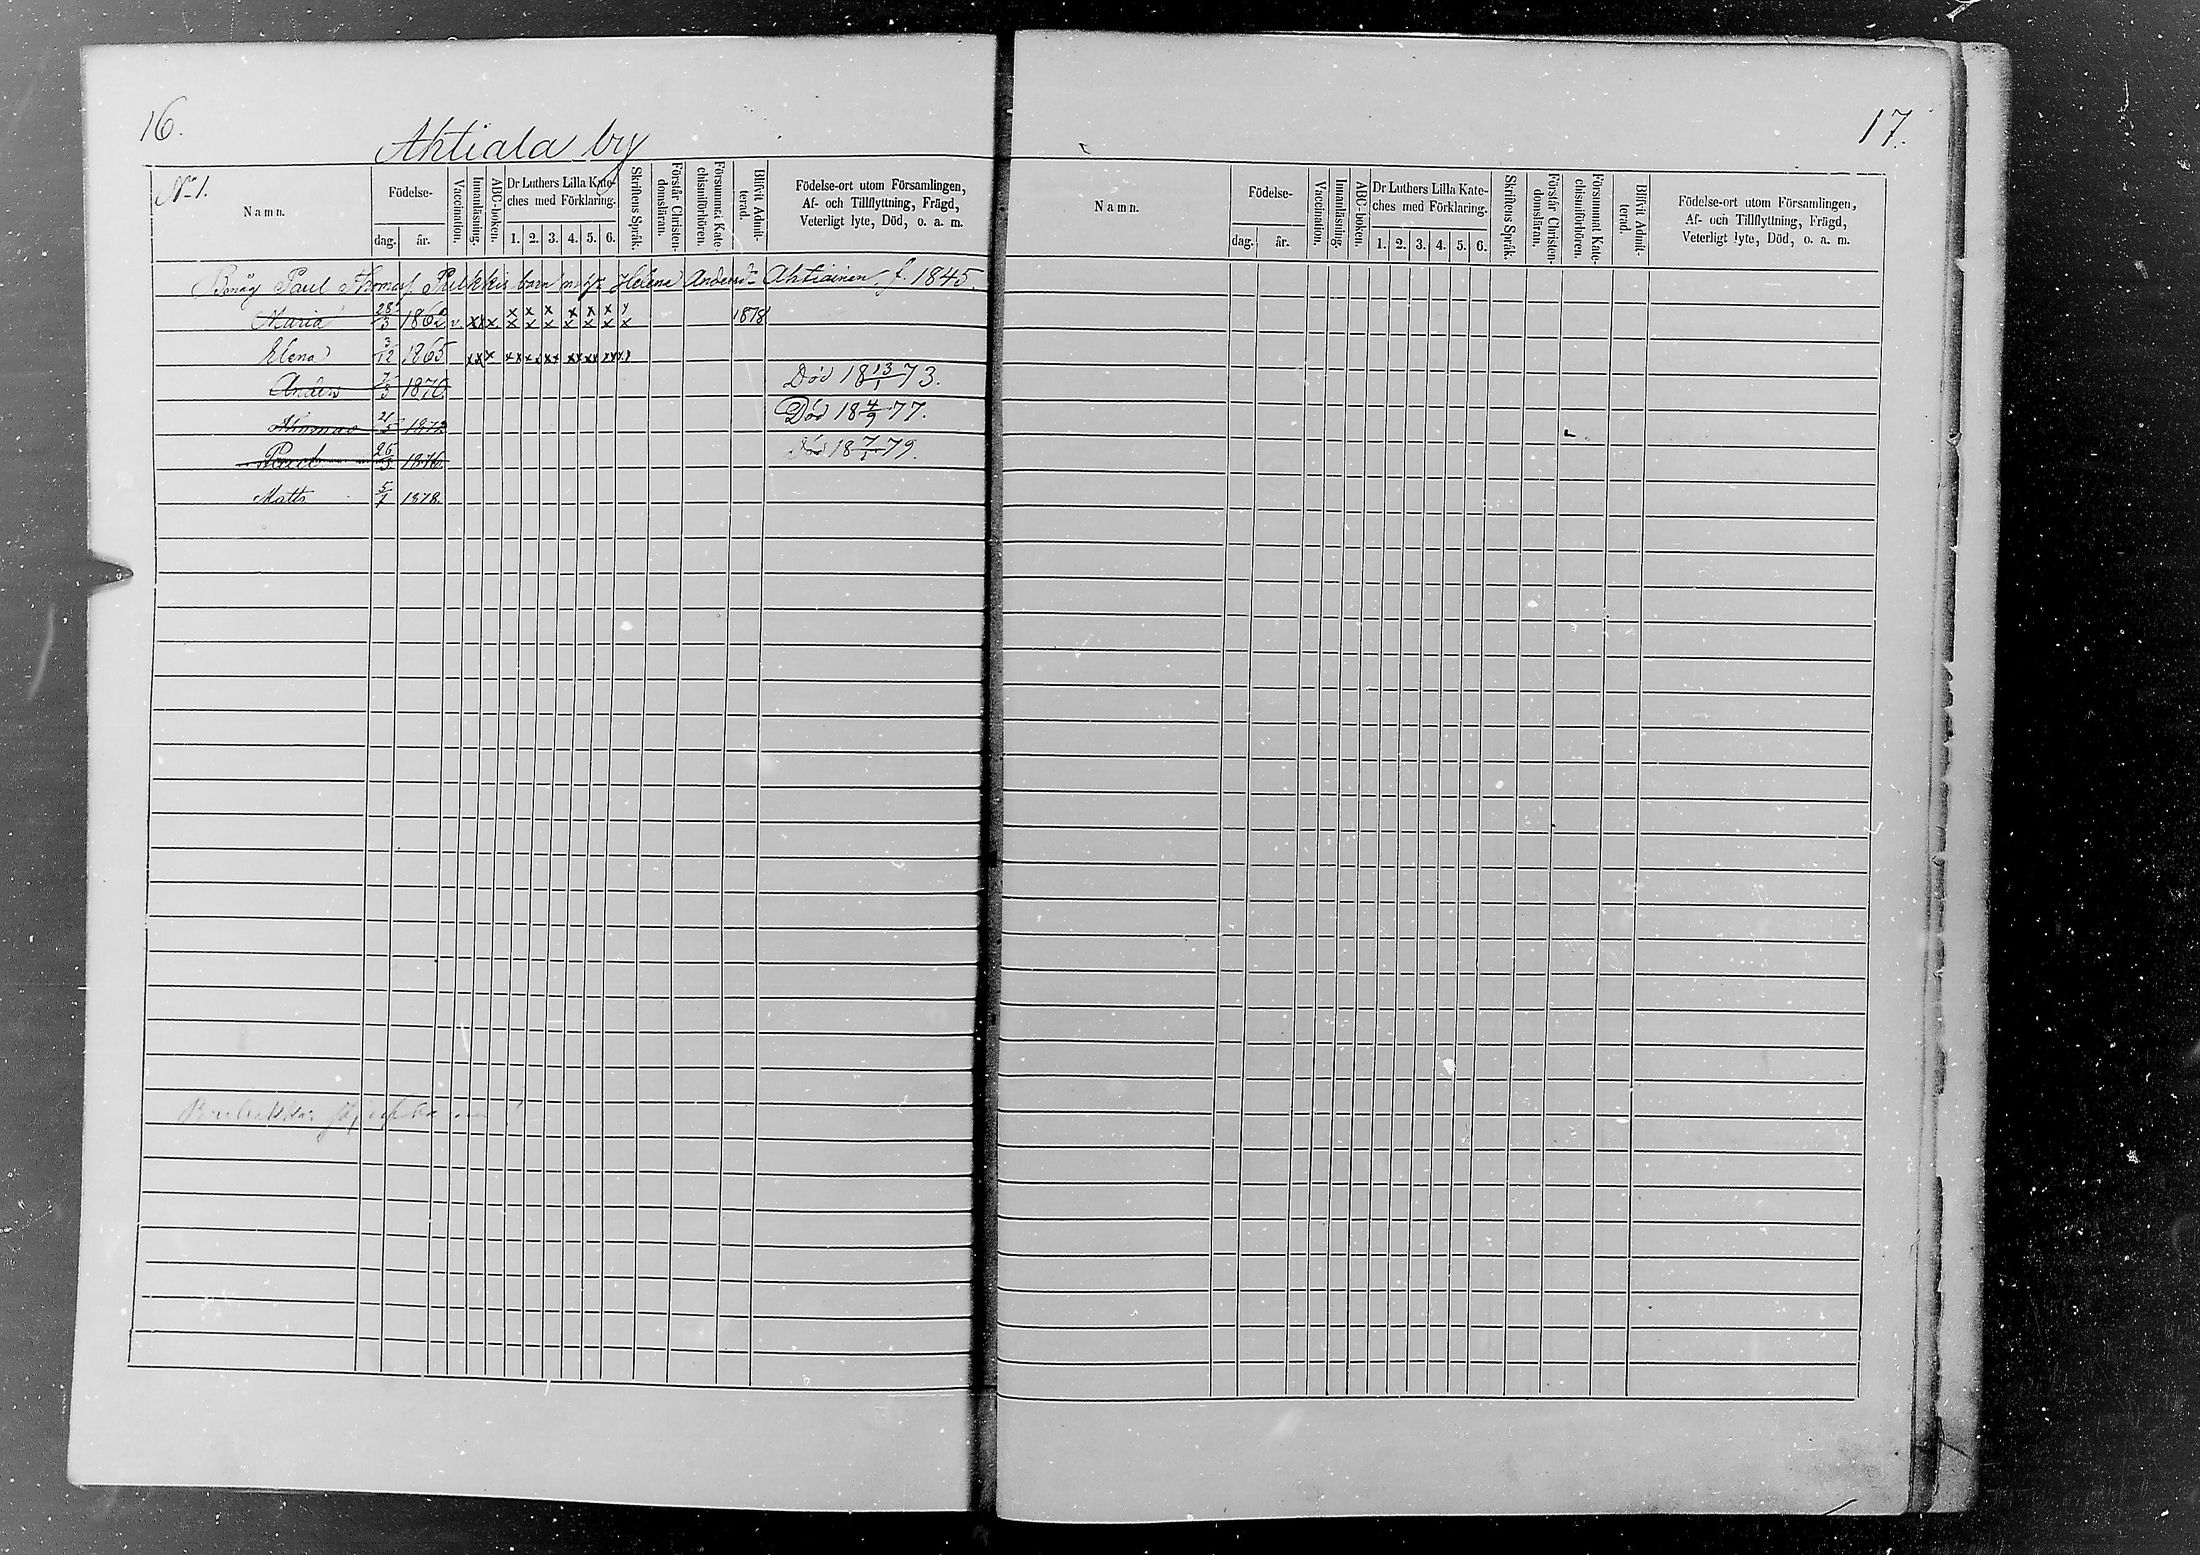 16.
Ahtiala by
No 1.
Namn.
Födelse-
dag.
år.
Vaccination.
Innanläsning.
ABC-boken.
Dr Luthers Lilla Kate-
ches med Förklaring.
1. 2. 3. 4. 5. 6.
Skriftens Språk.
Förstår Christen-
domsläran.
Försummat Kate-
chismiförhören.
Blifvit Admit-
terad.
Födelse-ort utom Församlingen,
Af- och Tillflyttning, Frägd,
Veterligt lyte, Död, o. a. m.
Paul Thomas Pulkkis barn m Helena Andersdr Ahtiainen, f. 1845.
Maria 28/3 1862 v. x x x x x x x x x x x x x x x x 1878
Elena 3/12 1865 x x x x x x x x x x x x x x x x x
Anders 7/3 1870 Död 18 13/1 73.
Thomas 21/5 1872 Död 18 4/9 77.
Paul 26/3 1876 Död 18 7/1 79.
Matts 5/1 1878.
17.
Namn.
Födelse-
dag.
år.
Vaccination.
Innanläsning.
ABC-boken.
Dr Luthers Lilla Kate-
ches med Förklaring.
1. 2. 3. 4. 5. 6.
Skriftens Språk.
Förstår Christen-
domsläran.
Försummat Kate-
chismiförhören.
Blifvit Admit-
terad.
Födelse-ort utom Församlingen,
Af- och Tillflyttning, Frägd,
Veterligt lyte, Död, o. a. m.